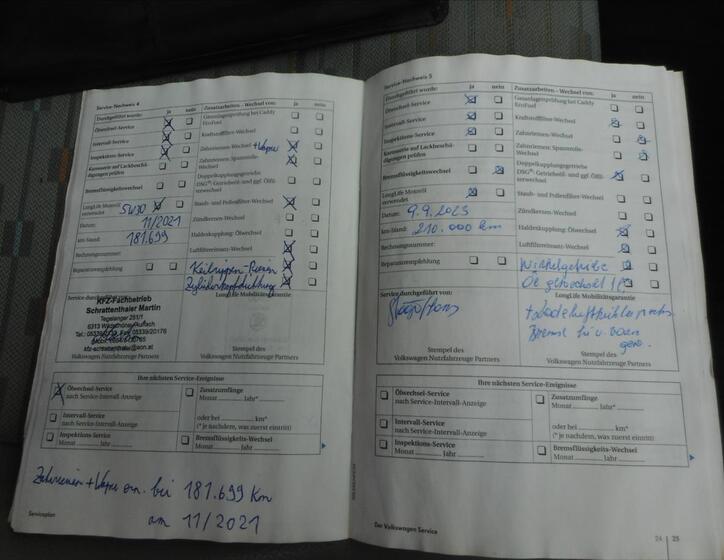 Service-Nachweis 4
Durchgeführt wurde: ja nein
Ölwechsel-Service
Intervall-Service
Inspektions-Service
Karosserie auf Lackbeschä-
digungen prüfen
Bremsflüssigkeitswechsel
LongLife Motoröl
verwendet 5W30
Datum: 11/2021
km-Stand: 181.699
Rechnungsnummer:
Reparaturempfehlung
Zusatzarbeiten - Wechsel von: ja nein
Gasanlagenprüfung bei Caddy
EcoFuel
Kraftstofffilter-Wechsel
Zahnriemen-Wechsel + Wapu
Zahnriemen, Spannrolle-
Wechsel
Doppelkupplungsgetriebe
DSG®: Getriebe- und ggf. Ölfil-
terwechsel
Staub- und Pollenfilter-Wechsel
Zündkerzen-Wechsel
Haldexkupplung: Ölwechsel
Luftfiltereinsatz-Wechsel
Keilrippen-Riemen
Zylinderkopfdichtung
Service durchgeführt von:
KFZ-Fachbetrieb
Schrattenthaler Martin
Stempel des
Volkswagen Nutzfahrzeuge Partners
LongLife Mobilitätsgarantie
Stempel des
Volkswagen Nutzfahrzeuge Partners
Ihre nächsten Service-Ereignisse
Ölwechsel-Service
nach Service-Intervall-Anzeige
Intervall-Service
nach Service-Intervall-Anzeige
Inspektions-Service
Monat Jahr
Zusatzumfänge
Monat Jahr*
oder bei km*
(* je nachdem, was zuerst eintritt)
Bremsflüssigkeits-Wechsel
Monat Jahr
Zahnriemen + Wapu ern. bei 181.699 Km
am 11/2021
Serviceplan
Service-Nachweis 5
Durchgeführt wurde: ja nein
Ölwechsel-Service
Intervall-Service
Inspektions-Service
Karosserie auf Lackbeschä-
digungen prüfen
Bremsflüssigkeitswechsel
LongLife Motoröl
verwendet
Datum: 9.9.2023
km-Stand: 210.000 km
Rechnungsnummer:
Reparaturempfehlung
Zusatzarbeiten - Wechsel von: ja nein
Gasanlagenprüfung bei Caddy
EcoFuel
Kraftstofffilter-Wechsel
Zahnriemen-Wechsel
Zahnriemen, Spannrolle-
Wechsel
Doppelkupplungsgetriebe
DSG®: Getriebe- und ggf. Ölfil-
terwechsel
Staub- und Pollenfilter-Wechsel
Zündkerzen-Wechsel
Haldexkupplung: Ölwechsel
Luftfiltereinsatz-Wechsel
Winkelgetriebe
Service durchgeführt von:
Stempel des
Volkswagen Nutzfahrzeuge Partners
LongLife Mobilitätsgarantie
Stempel des
Volkswagen Nutzfahrzeuge Partners
Ihre nächsten Service-Ereignisse
Ölwechsel-Service
nach Service-Intervall-Anzeige
Intervall-Service
nach Service-Intervall-Anzeige
Inspektions-Service
Monat Jahr
Zusatzumfänge
Monat Jahr*
oder bei km*
(* je nachdem, was zuerst eintritt)
Bremsflüssigkeits-Wechsel
Monat Jahr
Der Volkswagen Service
24 25